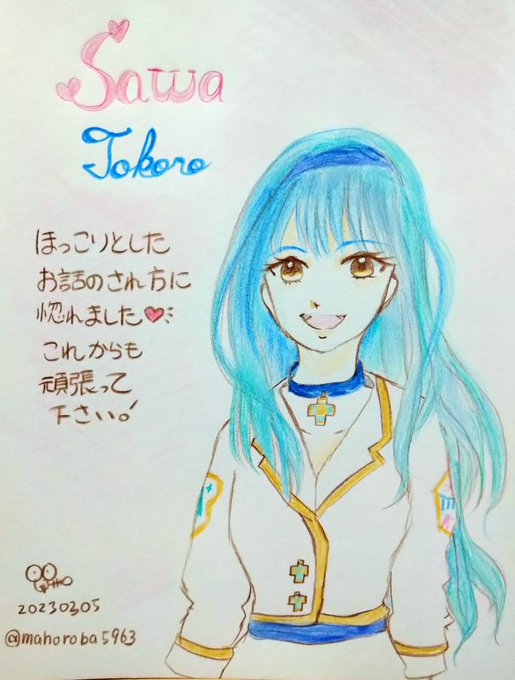 Sawa
Tokoro
ほっこりとした
お話のされ方に
惚れました
これからも
頑張って
下さい。
20230305
@mahoroba5963